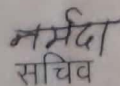 नर्मदा
सचिव